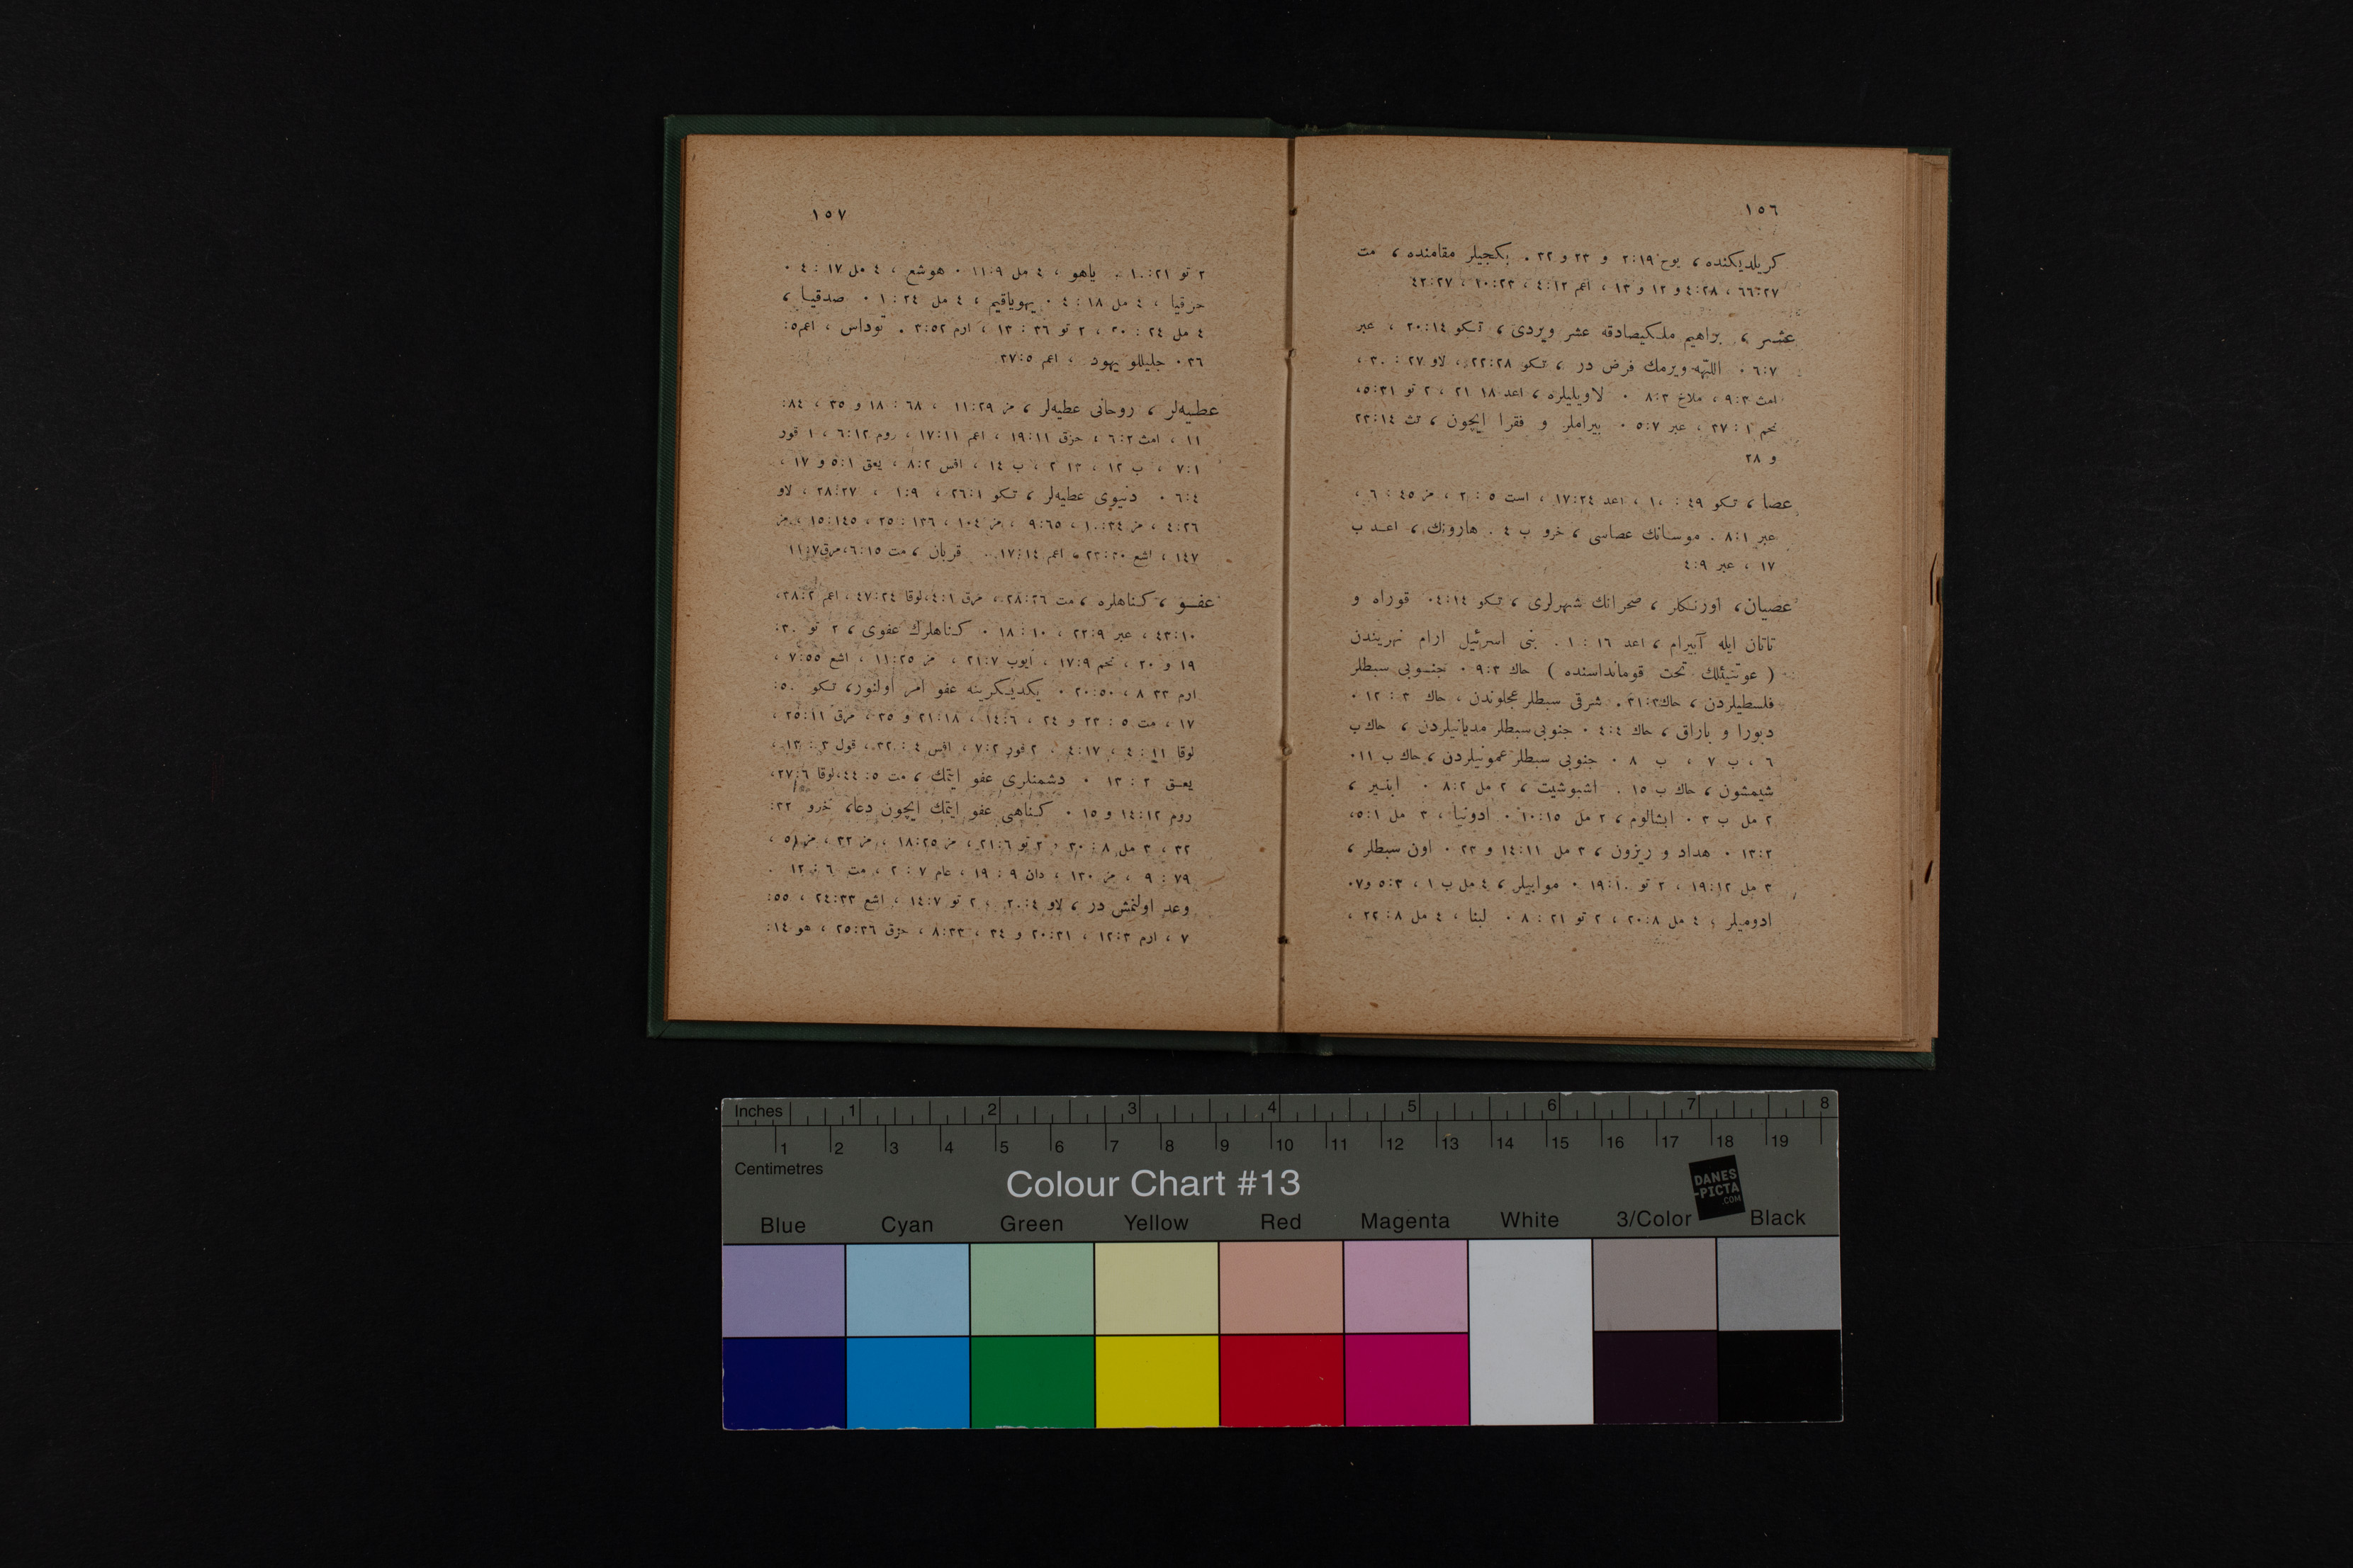 ١٥٦
كريلديكنده، يوح ٢:١٩ و ٢٣ و ٣٢ . بكجيلر مقامنده، مت
٦٦:٢٧ ، ٤:٢٨ و ١٢ و ١٣ ، اعم ٤:١٢ ، ١٠:٢٣ ، ٤٢:٢٧
عشر ، براهيم ملكيصادقه عشر ويردى ، تكو ٢٠:١٤ ، عبر
٦:٧ . اللّهه ويرمك فرض در ، تكو ٢٢:٢٨ ، لاو ٢٧ : ٣٠ ،
امث ٩:٣ ، ملاخ ٨:٣ . لاويليلره ، اعد ١٨ ٢١ ، ٢ تو ٥:٣١ ،
نحم ١ : ٢٧ ، عبر ٥:٧ . بيراملر و فقرا ايچون ، تث ٢٣:١٤
و ٢٨
عصا ، تكو ٤٩ : ١٠ ، اعد ١٧:٢٤ ، است ٥ : ٢ ، مز ٤٥ : ٦ ،
عبر ٨:١ . موسانك عصاسى ، خرو ب ٤ . هارونك ، اعد ب
١٧ ، عبر ٤:٩
عصيان، اورنكلر ، صحرانك شهرلرى ، تكو ٤:١٤ . قوراه و
تاتان ايله آبيرام ، اعد ١٦ : ١ . بنى اسرئيل ارام نهريندن
( عوتنيئلك تحت قومانداسنده ) حاك ٩:٣ . جنوبى سبطلر
فلسطيلردن ، حاك ٣١:٣ . شرقى سبطلر عجلوندن ، حاك ٣ : ١٢ .
دبورا و باراق ، حاك ٤:٤ . جنوبى سبطلر مديانيلردن ، حاك ب
٦ ، ب ٧ ، ب ٨ . جنوبى سبطلر عمونيلردن ، حاك ب ١١ .
شيمشون ، حاك ب ١٥ . اشبوشيت ، ٢ مل ٨:٢ . ابنير ،
٢ مل ب ٣ . ابشالوم ، ٢ مل ١٠:١٥ . ادونيا ، ٣ مل ٥:١ ،
١٣:٢ . هداد و ريزون ، ٣ مل ١٤:١١ و ٢٣ . اون سبطلر ،
٣ مل ١٩:١٢ ، ٢ تو ١٩:١٠ . موابيلر ، ٤ مل ب ١ ، ٥:٣ و ٧ .
ادوميلر ، ٤ مل ٢٠:٨ ، ٢ تو ٢١ : ٨ . لبنا ، ٤ مل ٢٢:٨ ،
١٥٧
٢ تو ١٠:٢١ . ياهو ، ٤ مل ١١:٩ . هوشع ، ٤ مل ١٧ : ٤ .
حزقيا ، ٤ مل ١٨ : ٤ . يهوياقيم ، ٤ مل ١:٢٤ . صدقيا ،
٤ مل ٢٤ : ٢٠ ، ٢ تو ٣٦ : ١٣ ، ارم ٣:٥٢ . توداس ، اعم ٥:
٣٦ . جليللو يهود ، اعم ٣٧:٥
عطيه‌لر ، روحانى عطيه‌لر ، مز ١١:٢٩ ، ٦٨ : ١٨ و ٣٥ ، ٨٤:
١١ ، امث ٦:٢ ، حزق ١٩:١١ ، اعم ١٧:١١ ، روم ٦:١٢ ، ١ قور
٧:١ ، ب ١٢ ، ١٣ ٢ ، ب ١٤ ، افس ٨:٢ ، يعق ٥:١ و ١٧ ،
٦:٤ . دنيوى عطيه‌لر ، تكو ٢٦:١ ، ١:٩ ، ٢٨:٢٧ ، لاو
٤:٢٦ ، مز ١٠:٣٤ ، ٩:٦٥ ، مز ١٠٤ ، ١٣٦ : ٢٥ ، ١٥:١٤٥ ، مز
١٤٧ ، اشع ٢٣:٣٠ ، اعم ١٧:١٤ . قربان ، مت ٦:١٥ ، مرق ١١:٧
عفو ، كناهلره ، مت ٢٨:٢٦ ، مرق ٤:١ ، لوقا ٤٧:٢٤ ، اعم ٣٨:٢ ،
٤٣:١٠ ، عبر ٢٢:٩ ، ١٠ : ١٨ . كناهلرك عفوى ، ٢ تو ٣٠:
١٩ و ٢٠ ، نحم ١٧:٩ ، ايوب ٢١:٧ ، مز ١١:٢٥ ، اشع ٧:٥٥ ،
ارم ٣٣ ٨ ، ٢٠:٥٠ . يكديكرينه عفو امر اولنور، تكو ٥٠:
١٧ ، مت ٥ : ٢٣ و ٢٤ ، ١٤:٦ ، ٢١:١٨ و ٣٥ ، مرق ٢٥:١١ ،
لوقا ١١ : ٤ ، ٤:١٧ ، ٢ قور ٧:٢ ، افس ٤ : ٣٢ ، قول ٣ : ١٣ ،
يعق ٢ : ١٣ . دشمنلرى عفو ايتمك ، مت ٥: ٤٤ ، لوقا ٢٧:٦ ،
روم ١٤:١٢ و ١٥ . كناهى عفو ايتمك ايچون دعا، خرو ٣٢:
٣٢ ، ٣ مل ٨ : ٣٠ ، ٢ تو ٢١:٦ ، مز ١٨:٢٥ ، مز ٣٢ ، مز ٥١ ،
٧٩ : ٩ ، مز ١٣٠ ، دان ٩ : ١٩ ، عام ٧ : ٢ ، مت ٦ : ١٢ .
وعد اولنمش در ، لاو ٢٠:٤ ، ٢ تو ١٤:٧ ، اشع ٢٤:٣٣ ، ٥٥:
٧ ، ارم ١٢:٣ ، ٢٠:٣١ و ٣٤ ، ٨:٣٣ ، حزق ٢٥:٣٦ ، هو ١٤:
Inches 1 2 3 4 5 6 7 8
1 2 3 4 5 6 7 8 9 10 11 12 13 14 15 16 17 18 19
Centimetres
Colour Chart #13
DANES
-PICTA
.COM
Blue Cyan Green Yellow Red Magenta White 3/Color Black